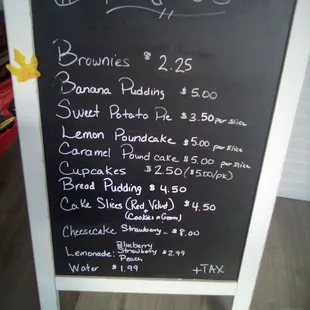 Brownies $ 2.25
Banana Pudding $5.00
Sweet Potato Pie $3.50 per slice
Lemon Poundcake $5.00 per slice
Caramel Pound cake $5.00 per slice
Cupcakes $2.50 ($5.00/pk)
Bread Pudding $4.50
Cake Slices (Red Velvet) $4.50
+
(Cookies n Cream)
Cheesecake Strawberry - $8.00
Blueberry
Lemonade: Strawberry $2.99
Peach
Water $1.99 +TAX